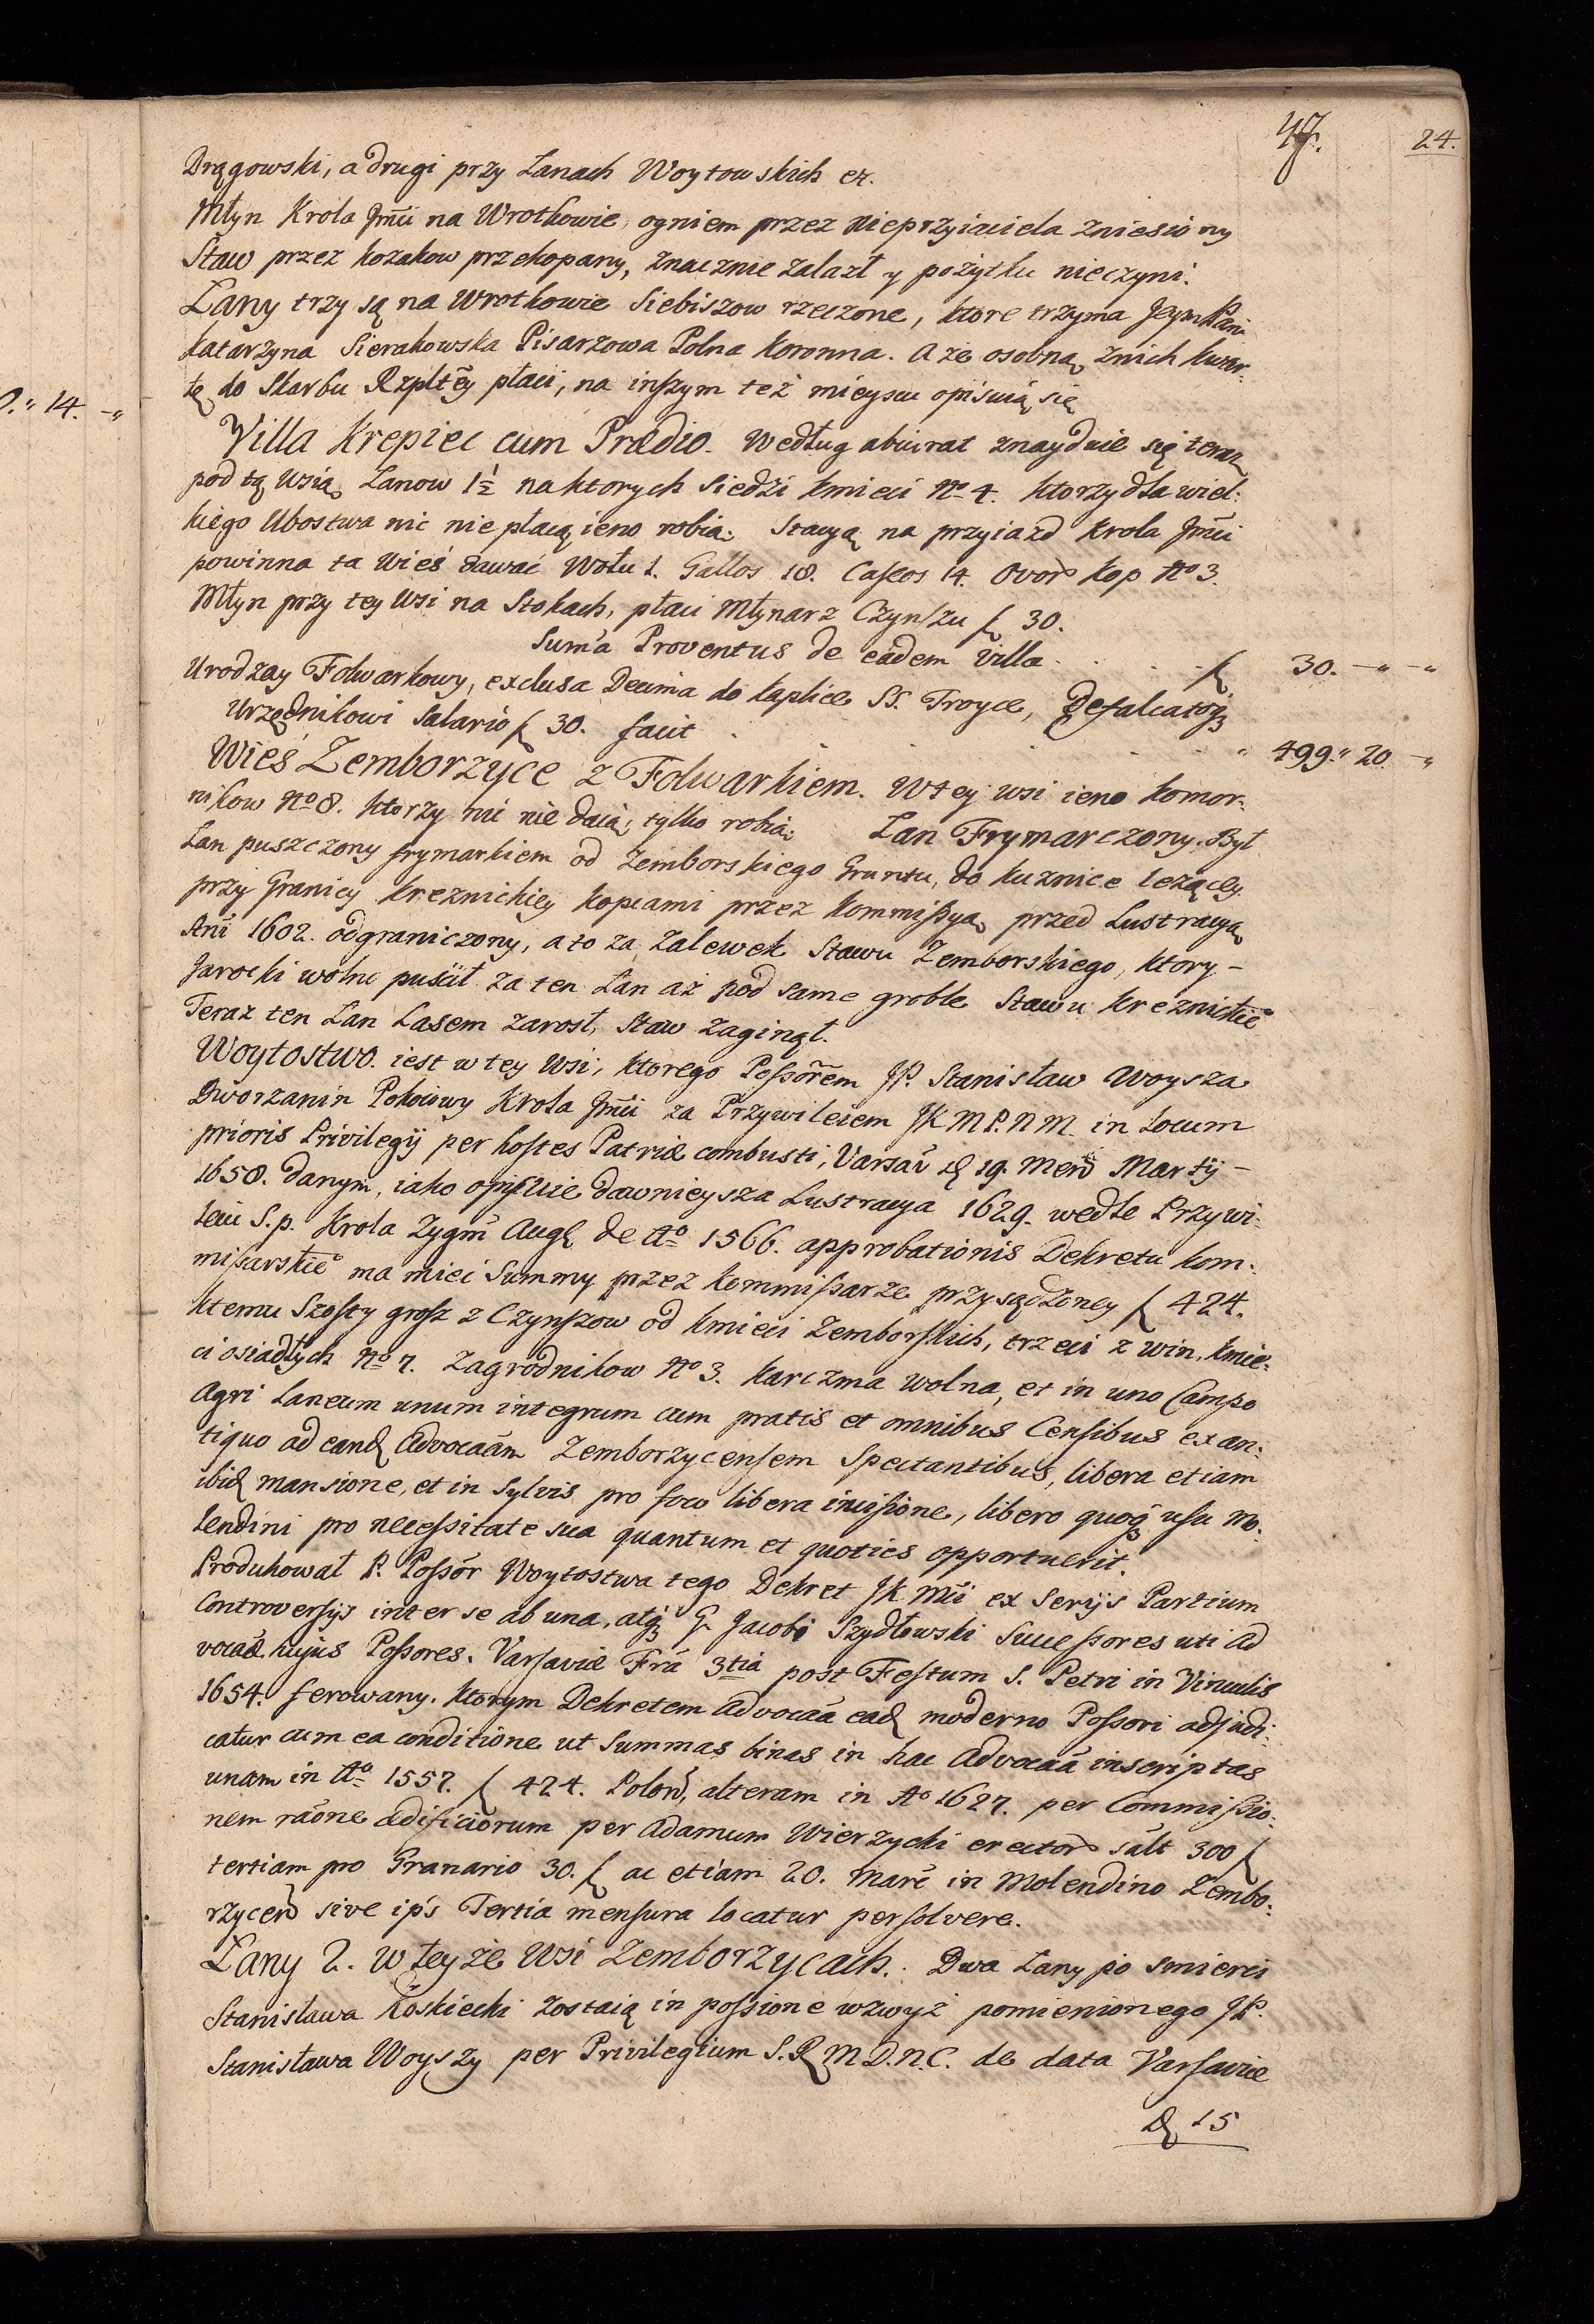 47. 24.
Drągowski, a drugi przy Łanach Woytowskich etc.
Młyn Krola Jmći na Wrotkowie, ogniem przez nieprzyiaciela zniesiony
Staw przez Kozakow przekopany, znacznie zalazł y pożytku nieczyni.
Łany trzy są na Wrotkowie Siebiszow rzeczone, ktore trzyma Jeym Pani
Katarzyna Sierakowska Pisarzowa Polna Koronna. A że osobną z nich kwar-
tę do Skarbu Rzpltey płaci, na inszym też mieyscu opisuią się
0." 14. -"
Villa Krepiec cum Prædio. Według abiurat znayduie się teraz
pod tą wsią Łanow 1½ na ktorych siedzi kmieci No 4. ktorzy dla wiel:
kiego Ubostwa nic nie płacą ieno robią. Stacyą na przyiazd Krola Jmći
powinna ta Wieś dawać Wołu 1. Gallos 18. Caseos 14. Ovor Kop No 3.
Młyn przy tey Wsi na Stokach, płaci Młynarz Czynszu f 30.
Suma Proventus de eadem Villa . . . . f 30. -" -"
Urodzay Folwarkowy, exclusa Decima do Kaplice SS. Troyce, Defalcatoq
Urzędnikowi Salario f 30. facit . . . . . . " 499." 20. -"
Wieś Zemborzyce z Folwarkiem. W tey wsi ieno komor:
nikow No 8. ktorzy nic nie daią, tylko robią. Łan Frymarczony. Był
Łan puszczony frymarkiem od Zemborskiego Gruntu, do Kuznice leżący
przy Granicy Kreznickiey kopcami przez Kommissyą przed Lustracyą
Ani 1602. odgraniczony, a to za zalewek Stawu Zemborskiego, ktory -
Jarocki wolno puścił za ten Łan aż pod same groble Stawu Kreznickieo
Teraz ten Łan Lasem zarost, staw zaginął.
Woytostwo. iest w tey Wsi, ktorego Possorem JP. Stanisław Woysza
Dworzanin Pokoiowy Krola Jmći za Przywileiem JK M P. N M. in Locum
prioris Privilegij per hostes Patriæ combusti, Varsav d 19. Mens Martij -
1658. danym, iako opisuie dawnieysza Lustracya 1629. wedle Przywi:
leiu S. p. Krola Zygm Aug de Ao 1566. approbationis Dekretu Kom:
missarskieo ma mieć Summy przez Kommissarze przysądzoney f 424.
ktemu Szosty grosz z Czynszow od Kmieci Zemborskich, trzeci z win, kmie:
ci osiadłych No 7. Zagrodnikow No 3. karczma wolna, et in uno Campo
Agri Laneum unum integrum cum pratis et omnibus Censibus ex an:
tiquo ad eand Advocaam Zemborzycensem Spectantibus, libera etiam
ibid mansione, et in Sylvis pro foco libera incisione, libero quoq usu Mo:
lendini pro necessitate sua quantum et quoties opportuerit.
Produkował P. Possor Woytostwa tego Dekret JK Mći ex Serijs Partium
Controversijs inter se ab una, atq G. Jacobi Szydłowski Successores uti Ad
vocae hujus Possores. Varsaviæ Fra 3tia post Festum S. Petri in Vinculis
1654. ferowany. ktorym Dekretem Advocaa ead moderno Possori adjudi:
catur cum ea conditione ut Summas binas in hac Advocaa inscriptas
unam in Ao 1557. f 424. Polon, alteram in Ao 1627. per Commissio:
nem raone ædificiorum per Adamum Wierzycki erector salt 300 f
tertiam pro Granario 30. f ac etiam 20. Marc in Molendino Zembo:
rzycen sive ips Tertia mensura locatur persolvere.
Łany 2. w teyże Wsi Zemborzycach. Dwa Łany po śmierci
Stanisława Koskiecki zostaią in possione wzwyż pomienionego JP.
Stanisława Woyszy per Privilegium S. R M D. N. C. de data Varsaviæ
d 15